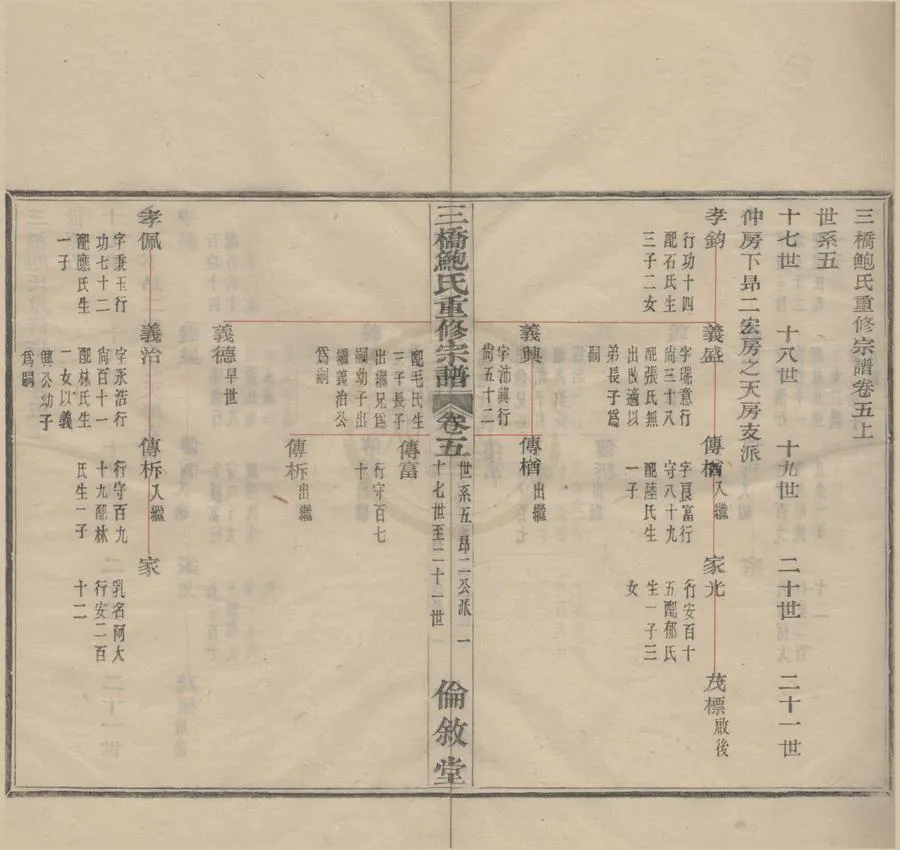 三橋鮑氏重修宗譜卷五上
世系五
十七世 十八世 十九世 二十世 二十一世
仲房下昂二宏房之天房支派
孝鈞
行功十四
配石氏生
三子二女
義盛
字瑞意行
尚三十八
配張氏無
出故適以
弟長子爲
嗣
傳楢入繼
字良富行
守八十九
配陸氏生
一子
家光
行安百十
五配郁氏
生一子三
女
茂標啟後
義興
字沛興行
尚五十二
配毛氏生
三子長子
出繼兄爲
嗣幼子出
繼義治公
爲嗣
傳楢出繼
傳富
行守百七
十
傳柝出繼
義德早世
三橋鮑氏重修宗譜 卷五
世系五昂二公派 一
十七世至二十一世
倫敘堂
孝佩
字秉玉行
功七十二
配應氏生
一子
義治
字永浩行
尚百十一
配林氏生
二女以義
興公幼子
爲嗣
傳柝入繼
行守百九
十九配林
氏生一子
家
乳名阿大
行安二百
十二